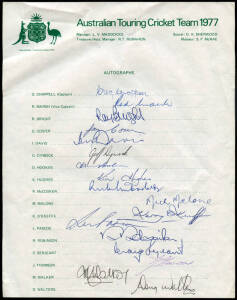 Australian Touring Cricket Team 1977
Manager: L. V. MADDOCKS
Scorer: D. K. SHERWOOD
Treasurer/Asst. Manager: N. T. McMAHON
Masseur: S. P. McRAE
AUTOGRAPHS
G. CHAPPELL (Captain)
R. MARSH (Vice-Captain)
R. BRIGHT
G. COSIER
I. DAVIS
G. DYMOCK
D. HOOKES
K. HUGHES
R. McCOSKER
M. MALONE
K. O'KEEFFE
L. PASCOE
R. ROBINSON
C. SERJEANT
J. THOMSON
M. WALKER
D. WALTERS